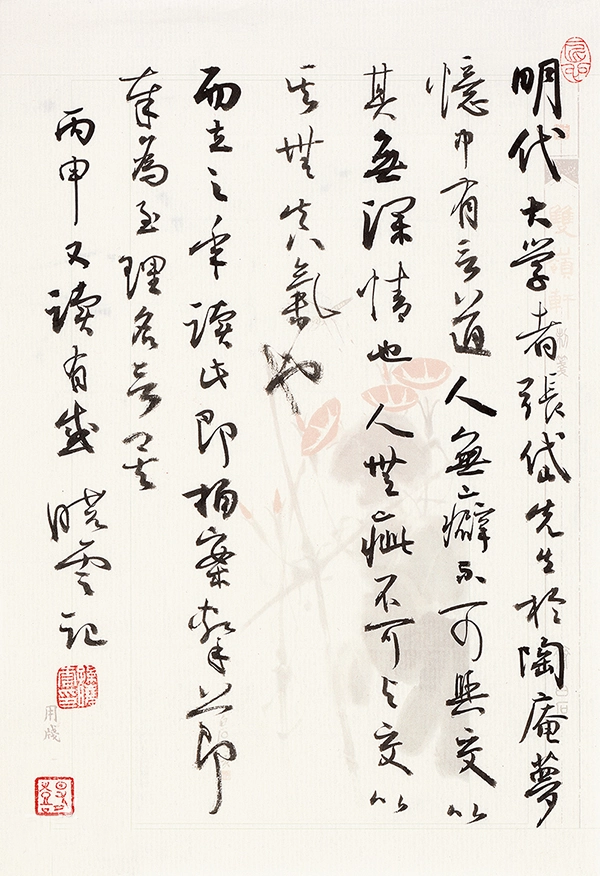 明代大学者張岱先生於陶庵夢
憶中有言道人無癖不可與交以
其無深情也人無疵不可与交以
其無真氣也
而立之年读此即拍案擊节即
奉為至理名言是
丙申又读有感 晓雲记
雙嶺軒
用牋